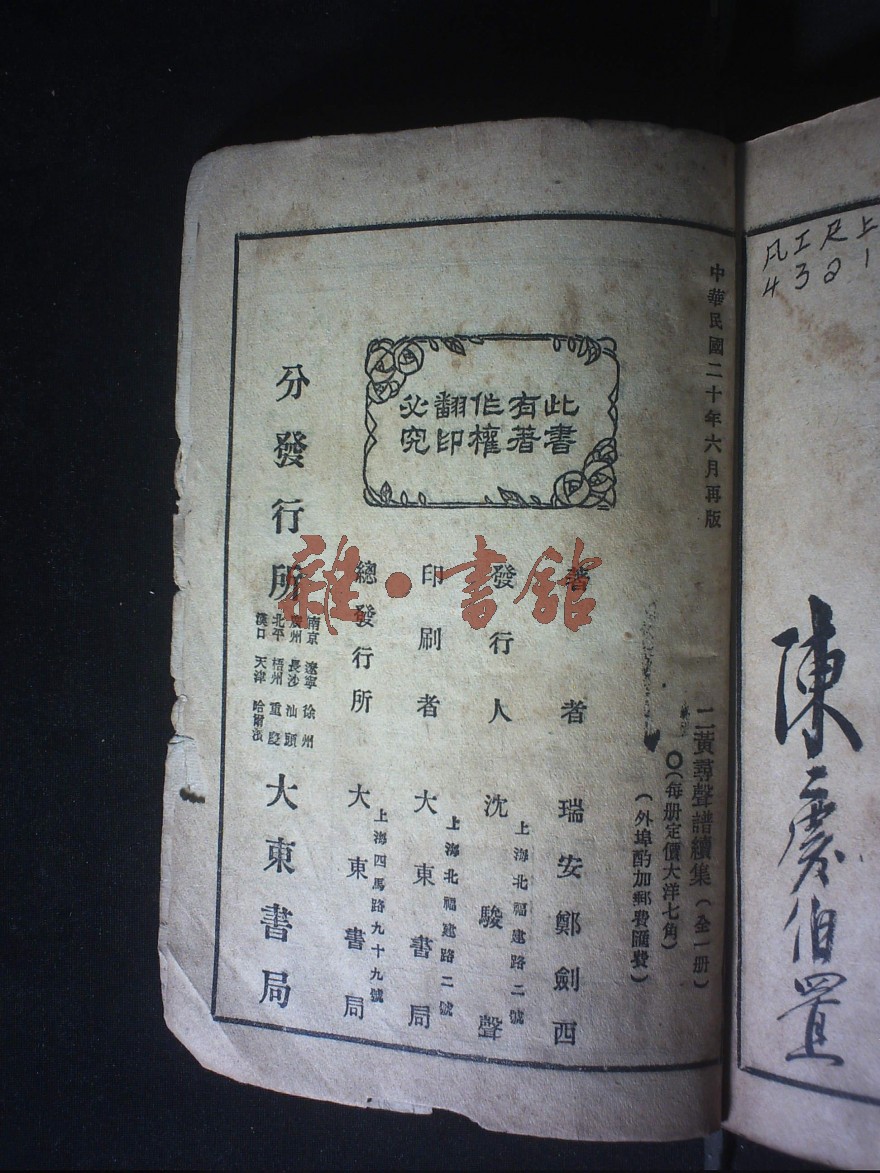 上尺工凡
1234
陳慶伯置
中華民國二十年六月再版
二黃尋聲譜續集（全一册）
〇（每册定價大洋七角）
（外埠酌加郵費匯費）
此書有著作權翻印必究
著者 瑞安鄭劍西
發行人 沈駿聲
上海北福建路二號
印刷者 大東書局
上海北福建路二號
總發行所 大東書局
上海四馬路九十九號
分發行所 大東書局
南京 遼寧 徐州
廣州 長沙 汕頭
北平 梧州 重慶
漢口 天津 哈爾濱
雜·書館